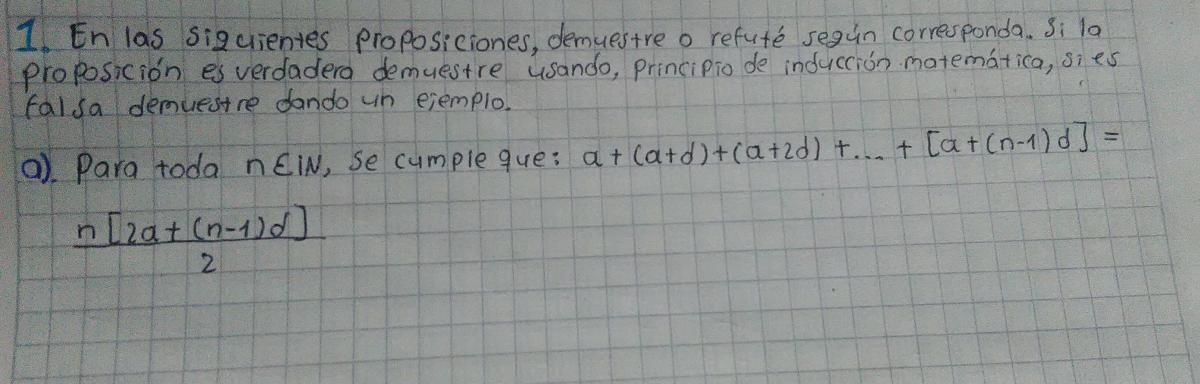 1. En las siguientes proposiciones, demuestre o refuté según corresponda. Si la
proposición es verdadera demuestre usando, principio de inducción matemática, si es
falsa demuestre dando un ejemplo.
a). Para toda n∈IN, se cumple que: a+(a+d)+(a+2d)+...+[a+(n-1)d]=
n[2a+(n-1)d]
2